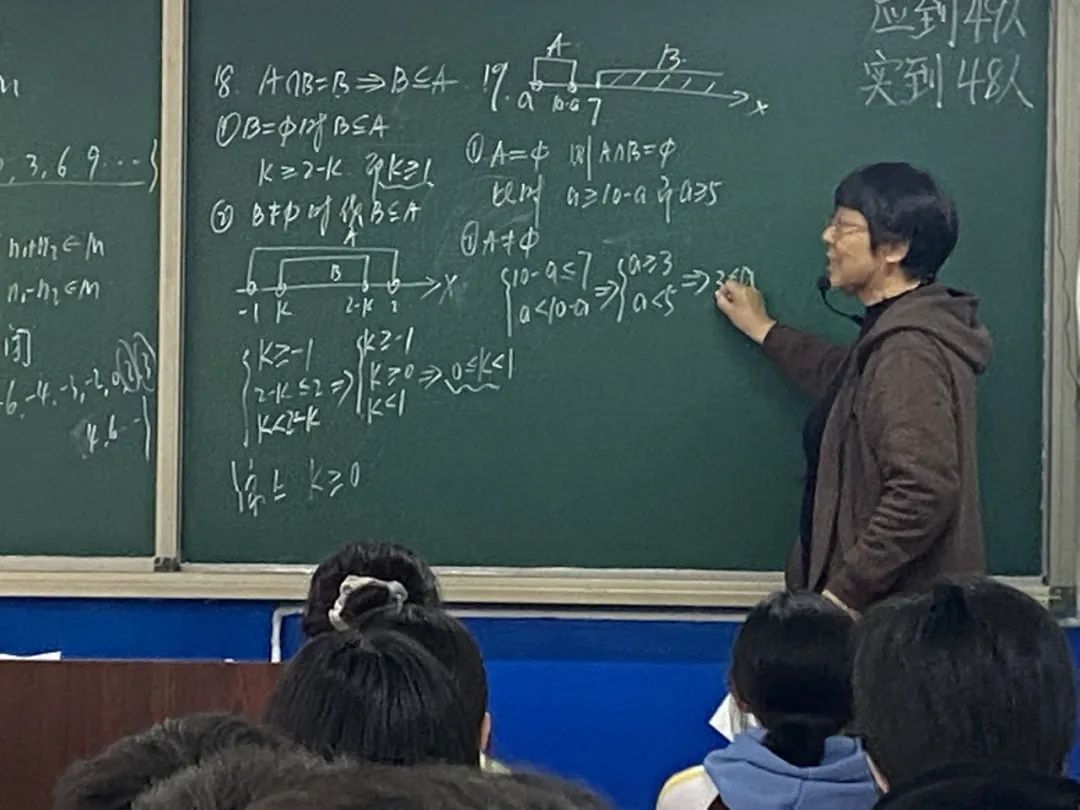 3, 6, 9 ⋯ }
n₁+n₂ ∈ M
n₁-n₂ ∈ M
-6, -4, -3, -2, 0, 2, 3
4, 6 ⋯ }
18. A∩B=B ⇒ B⊆A
① B=φ时 B⊆A
K≥2-K 即K≥1
② B≠φ时 B⊆A
A
B
-1 K 2-K 2 X
{ K≥-1
2-K≤2
K<2-K
⇒ { K≥-1
K≥0
K<1
⇒ 0≤K<1
综上 K≥0
19.
A B
a 10-a 7 x
① A=φ 则A∩B=φ
此时 a≥10-a 即a≥5
② A≠φ
{ 10-a≤7
a<10-a
⇒ { a≥3
a<5
⇒ 3≤a
应到49人
实到48人